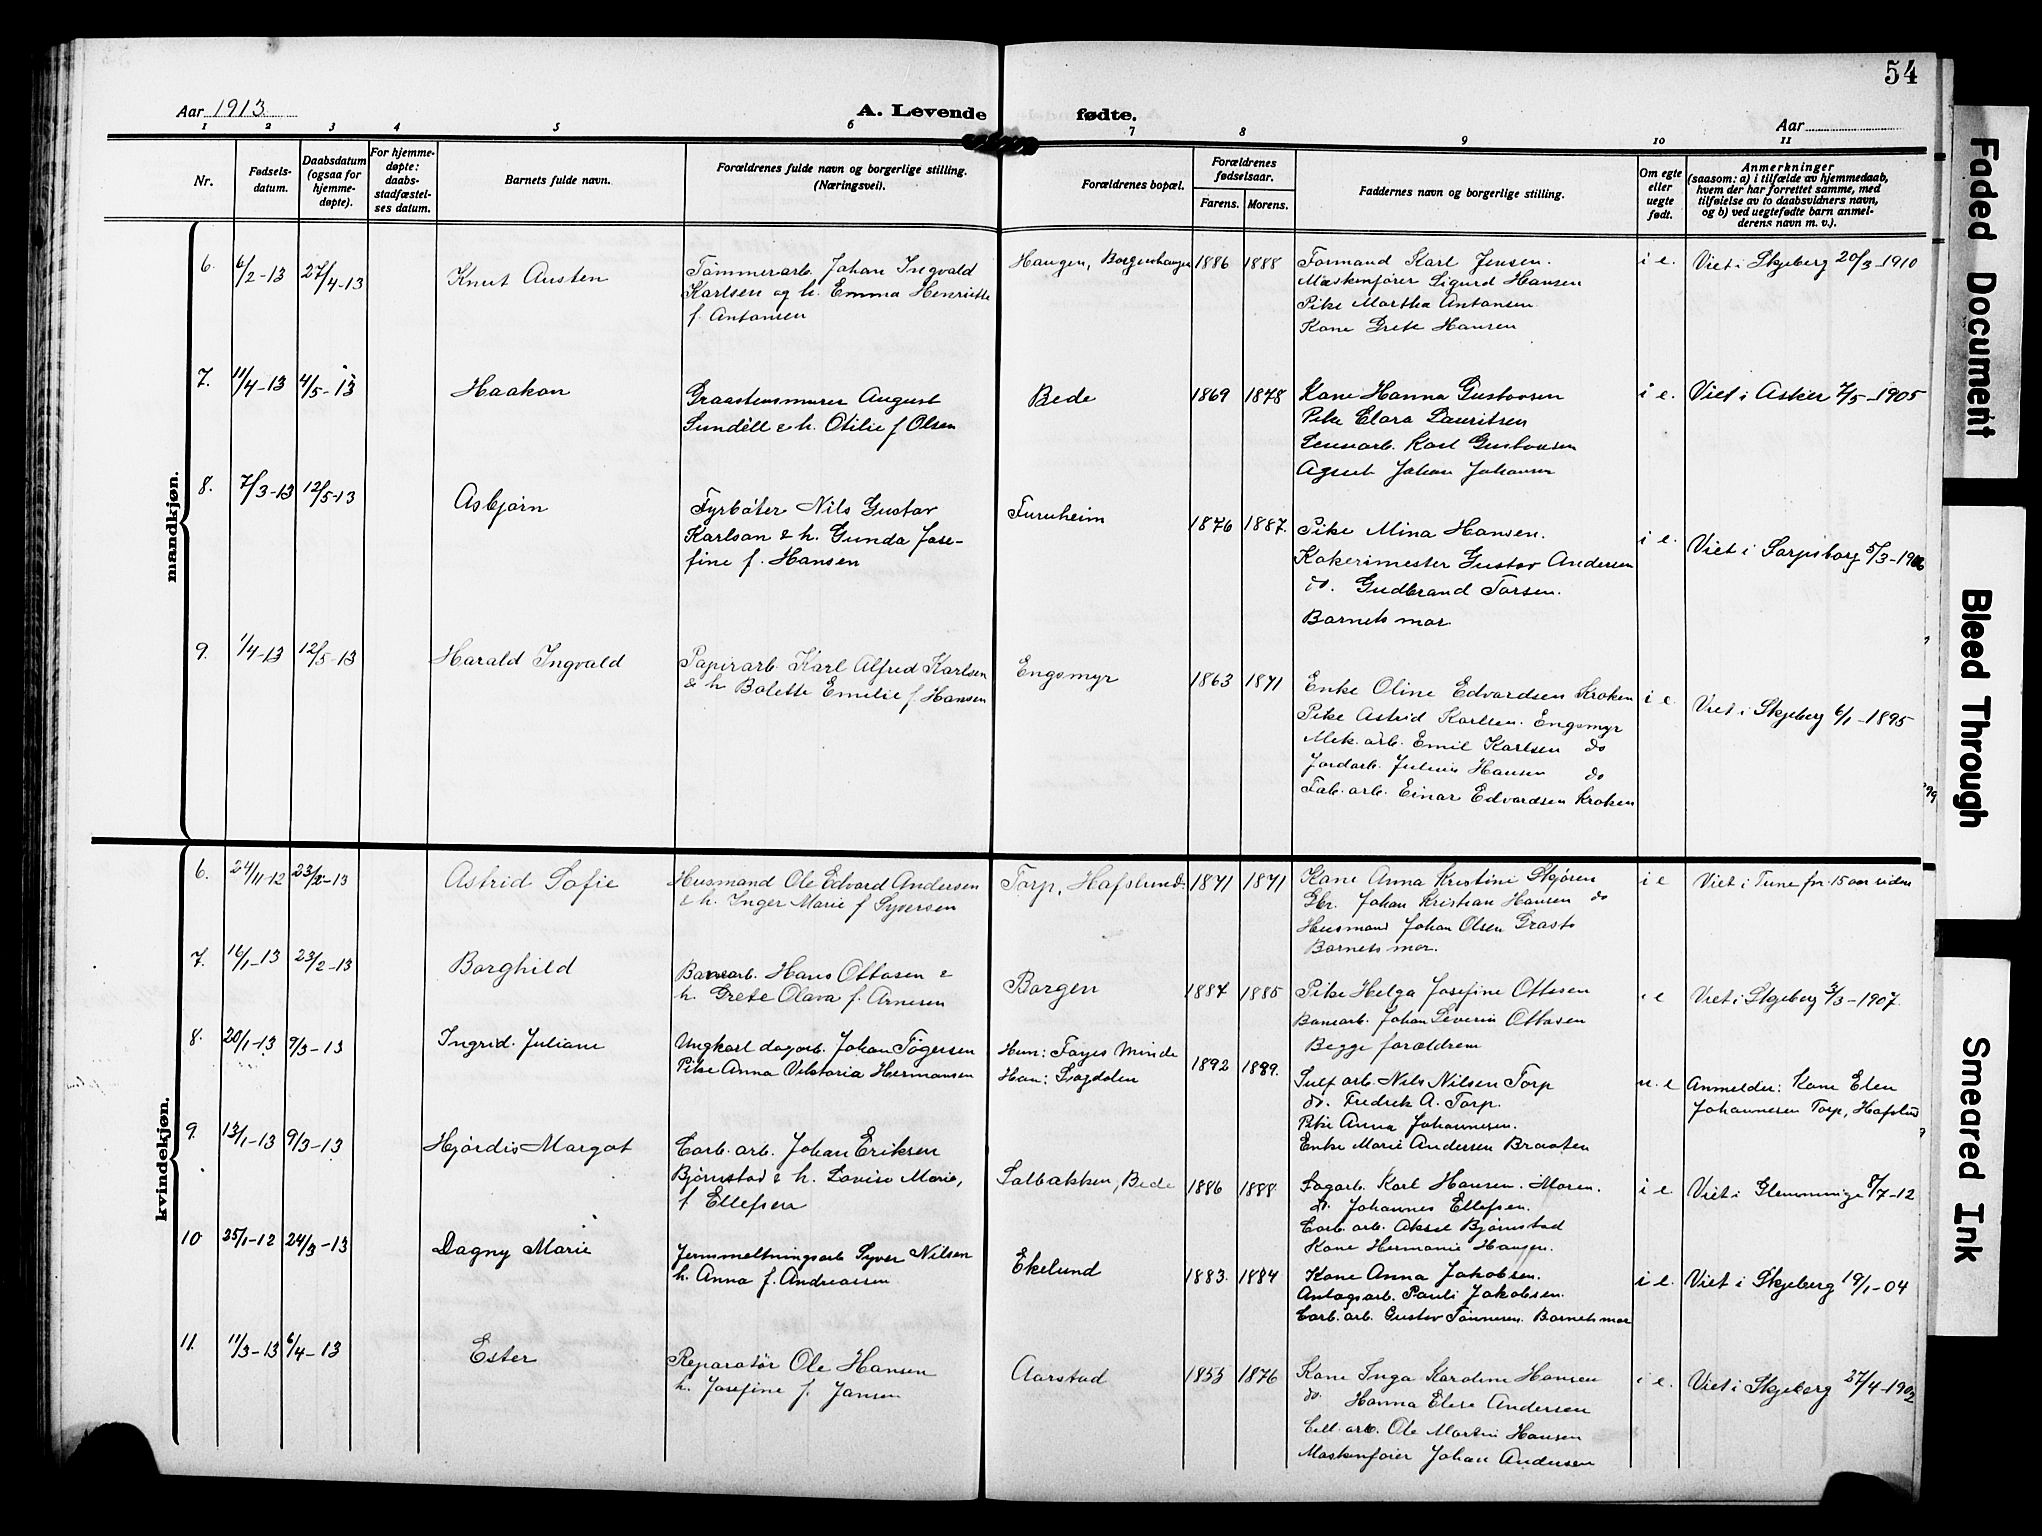 54
Aar 1913
A. Levende fødte.
Aar
1 2 3 4 5 6 7 8 9 10 11
Nr.
Fødsels-
datum.
Daabsdatum
(ogsaa for
hjemme-
døpte).
For hjemme-
døpte:
daabs-
stadfæstel-
ses datum.
Barnets fulde navn.
Forældrenes fulde navn og borgerlige stilling.
(Næringsvei).
Forældrenes bopæl.
Forældrenes
fødselsaar.
Farens. Morens.
Faddernes navn og borgerlige stilling.
Om egte
eller
uegte
født.
Anmerkninger
(saasom: a) i tilfælde av hjemmedaab,
hvem der har forrettet samme, med
tilføielse av to daabsvidners navn,
og b) ved uegtefødte barn anmel-
derens navn m. v.).
mandkjøn.
6. 6/2-13 27/4-13
Knut Austen
Tømmerarb. Johan Ingvald
Karlsen og h. Emma Henriette
f. Antonsen
Haugen, Borgenhaugen
1886 1888
Formand Karl Jensen.
Maskenfører Sigurd Hansen
Pike Martha Antonsen
Kone Grete Hansen
i e.
Viet i Skjeberg 20/3-1910
7. 11/4-13 4/5-13
Haakon
Graastensmurer August
Sundèll & h. Otilie f Olsen
Bede
1869 1878
Kone Hanna Gustavsen
Pike Clara Lauritsen
Karl Gustavsen
Agent Johan Johansen
i e.
Viet i Asker 7/5-1905
8. 7/3-13 12/5-13
Asbjørn
Fyrbøter Nils Gustav
Karlson & h. Gunda Jose-
fine f. Hansen
Furuheim
1876 1887.
Pike Mina Hansen.
Kokerimester Gustav Andersen
do. Gudbrand Torsen.
Barnets mor
i e.
Viet i Sarpsborg 5/3-1906
9. 1/4-13 12/5-13
Harald Ingvald
Papirarb. Karl Alfred Karlsen
& h Bolette Emilie f. Hansen
Engsmyr
1863 1871
Enke Oline Edvardsen Kroken
Pike Astrid Karlsen. Engsmyr
Mek. arb. Emil Karlsen do
Jordarb. Julius Hansen do
Fab. arb. Einar Edvardsen Kroken
i e.
Viet i Skjeberg 6/1-1895
kvindekjøn.
6. 24/11-12 23/2-13
Astrid Sofie
Husmand Ole Edvard Andersen
& h. Inger Marie f Syversen
Torp, Hafslund.
1871 1871
Kone Anna Kristine Skjøren
Gbr. Johan Kristian Hansen do
Husmand Johan Olsen
Barnets mor.
i e
Viet i Tune for 15 aar siden
7. 16/1-13 23/2-13
Borghild
Banearb. Hans Ottosen &
h. Grete Olava f. Arnesen
Borgen
1884 1885
Pike Helga Josefine Ottesen
Banearb. Johan Severin Ottosen
Begge forældrene
i e
Viet i Skjeberg 3/3-1907.
8. 20/1-13 9/3-13
Ingrid Juliane
Ungkarl dagarb. Johan Tøgersen
Pike Anna Viktoria Hermansen
Hun: Fayes Minde
Han: Sagdalen
1892 1889.
Sulf arb. Nils Nilsen Torp
do. Fredrik A. Torp.
Pike Anna Johannesen.
Enke Marie Andersen Braaten
u. e
Anmelder: Kone Elen
Johannesen Torp, Hafslund
9. 13/1-13 9/3-13
Hjørdis Margot
Carb. arb. Johan Eriksen
Bjørnstad & h. Lovise Marie,
f Ellefsen
Solbakken, Bede
1886 1888
Sagarb. Karl Hansen. Moren.
do. Johannes Ellefsen.
Carb. arb. Aksel Bjørnstad
Kone Hermanie Hansen.
i e.
Viet i Glemminge 8/7-12
10 25/1-12 24/3-13
Dagny Marie
Jernsmeltningsarb Syver Nilsen
h. Anna f. Andreassen
Ekelund
1883. 1884
Kone Anna Jakobsen.
Anlægsarb. Pauli Jakobsen.
Carb. arb. Gustav Tønnesen. Barnets mor
i e.
Viet i Skjeberg 19/1-04
11. 11/3-13 6/4-13
Ester
Reparatør Ole Hansen
h. Josefine f. Jansen
Aarstad
1855 1876
Kone Inga Karoline Hansen
do. Hanna Elise Andersen
Cell. arb. Ole Martin Hansen
Maskenfører Johan Andersen
i e.
Viet i Skjeberg 27/4-1902
Faded Document
Bleed Through
Smeared Ink